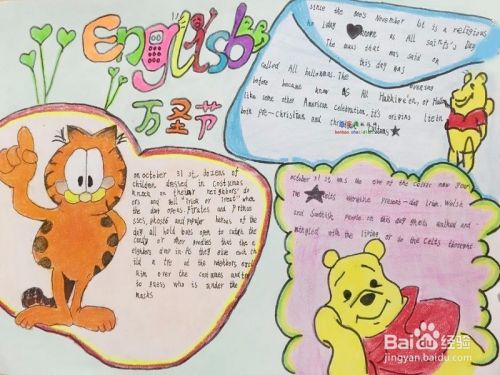 English
万圣节
Since the 800's November 1st is a religious
holiday known as All saint's Day
The mass that was said on
this day was
called All hallowmas. The
before became know as All Hakkiwe'en, or Hallo
like some other American celebration, it's origins lie in
both pre-Christian and
on october 31 st, dozens of
children dressed in costumes
knock on their neighbors' do
ors and yell "trick or treat" when
the door opens. Pirates and princes
ses, ghosts and popular heroes of the
day all hold bags open to catch the
candy or other goodies that the n
eighbors drop in. As they give each ch
ild a treat the neighbors excl
aim over the costumes and try
to guess who is under the
masks
october 31 st was the eve of the Celtic new year
The Celts were the present-day Irish, Welsh
and Scottish people. on this day ghosts walked and
mingled with the living or so the Celts thought
Baidu 经验
jingyan.baidu.com